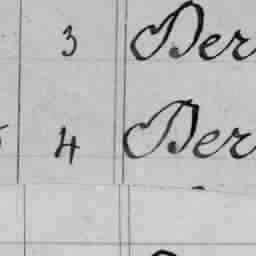 3 Ber
4 Ber